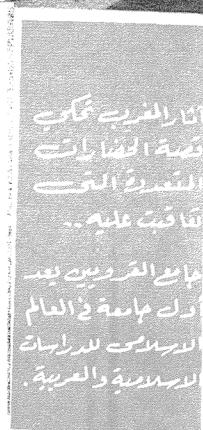 آثار المغرب تحكي
قصة الحضارات
المتعددة التى
تعاقبت عليه ..
جامع القرويين يعد
أول جامعة في العالم
الإسلامى للدراسات
الإسلامية والعربية .